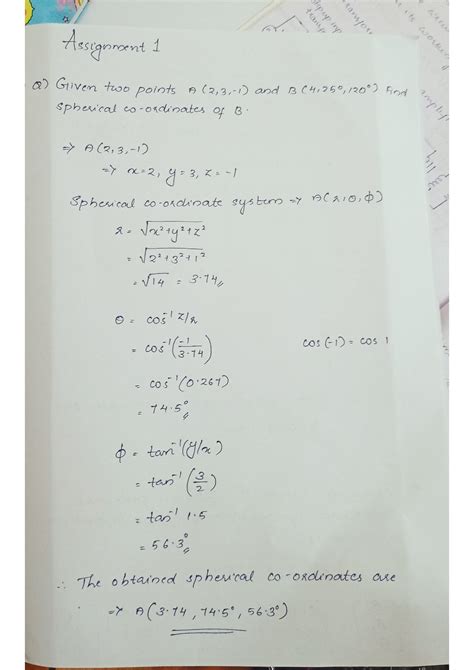 Assignment 1
Q) Given two points A(2,3,-1) and B(4,25°,120°) Find
spherical co-ordinates of B.
=> A(2,3,-1)
=> x=2, y=3, z=-1
Spherical co-ordinate system => A(r,θ,ϕ)
r = √x²+y²+z²
= √2²+3²+1²
= √14 = 3.74
θ = cos⁻¹ z/r
= cos⁻¹(-1/3.74) cos(-1) = cos 1
= cos⁻¹(0.267)
= 74.5°
ϕ = tan⁻¹(y/x)
= tan⁻¹(3/2)
= tan⁻¹ 1.5
= 56.3°
∴ The obtained spherical co-ordinates are
=> A(3.74, 74.5°, 56.3°)